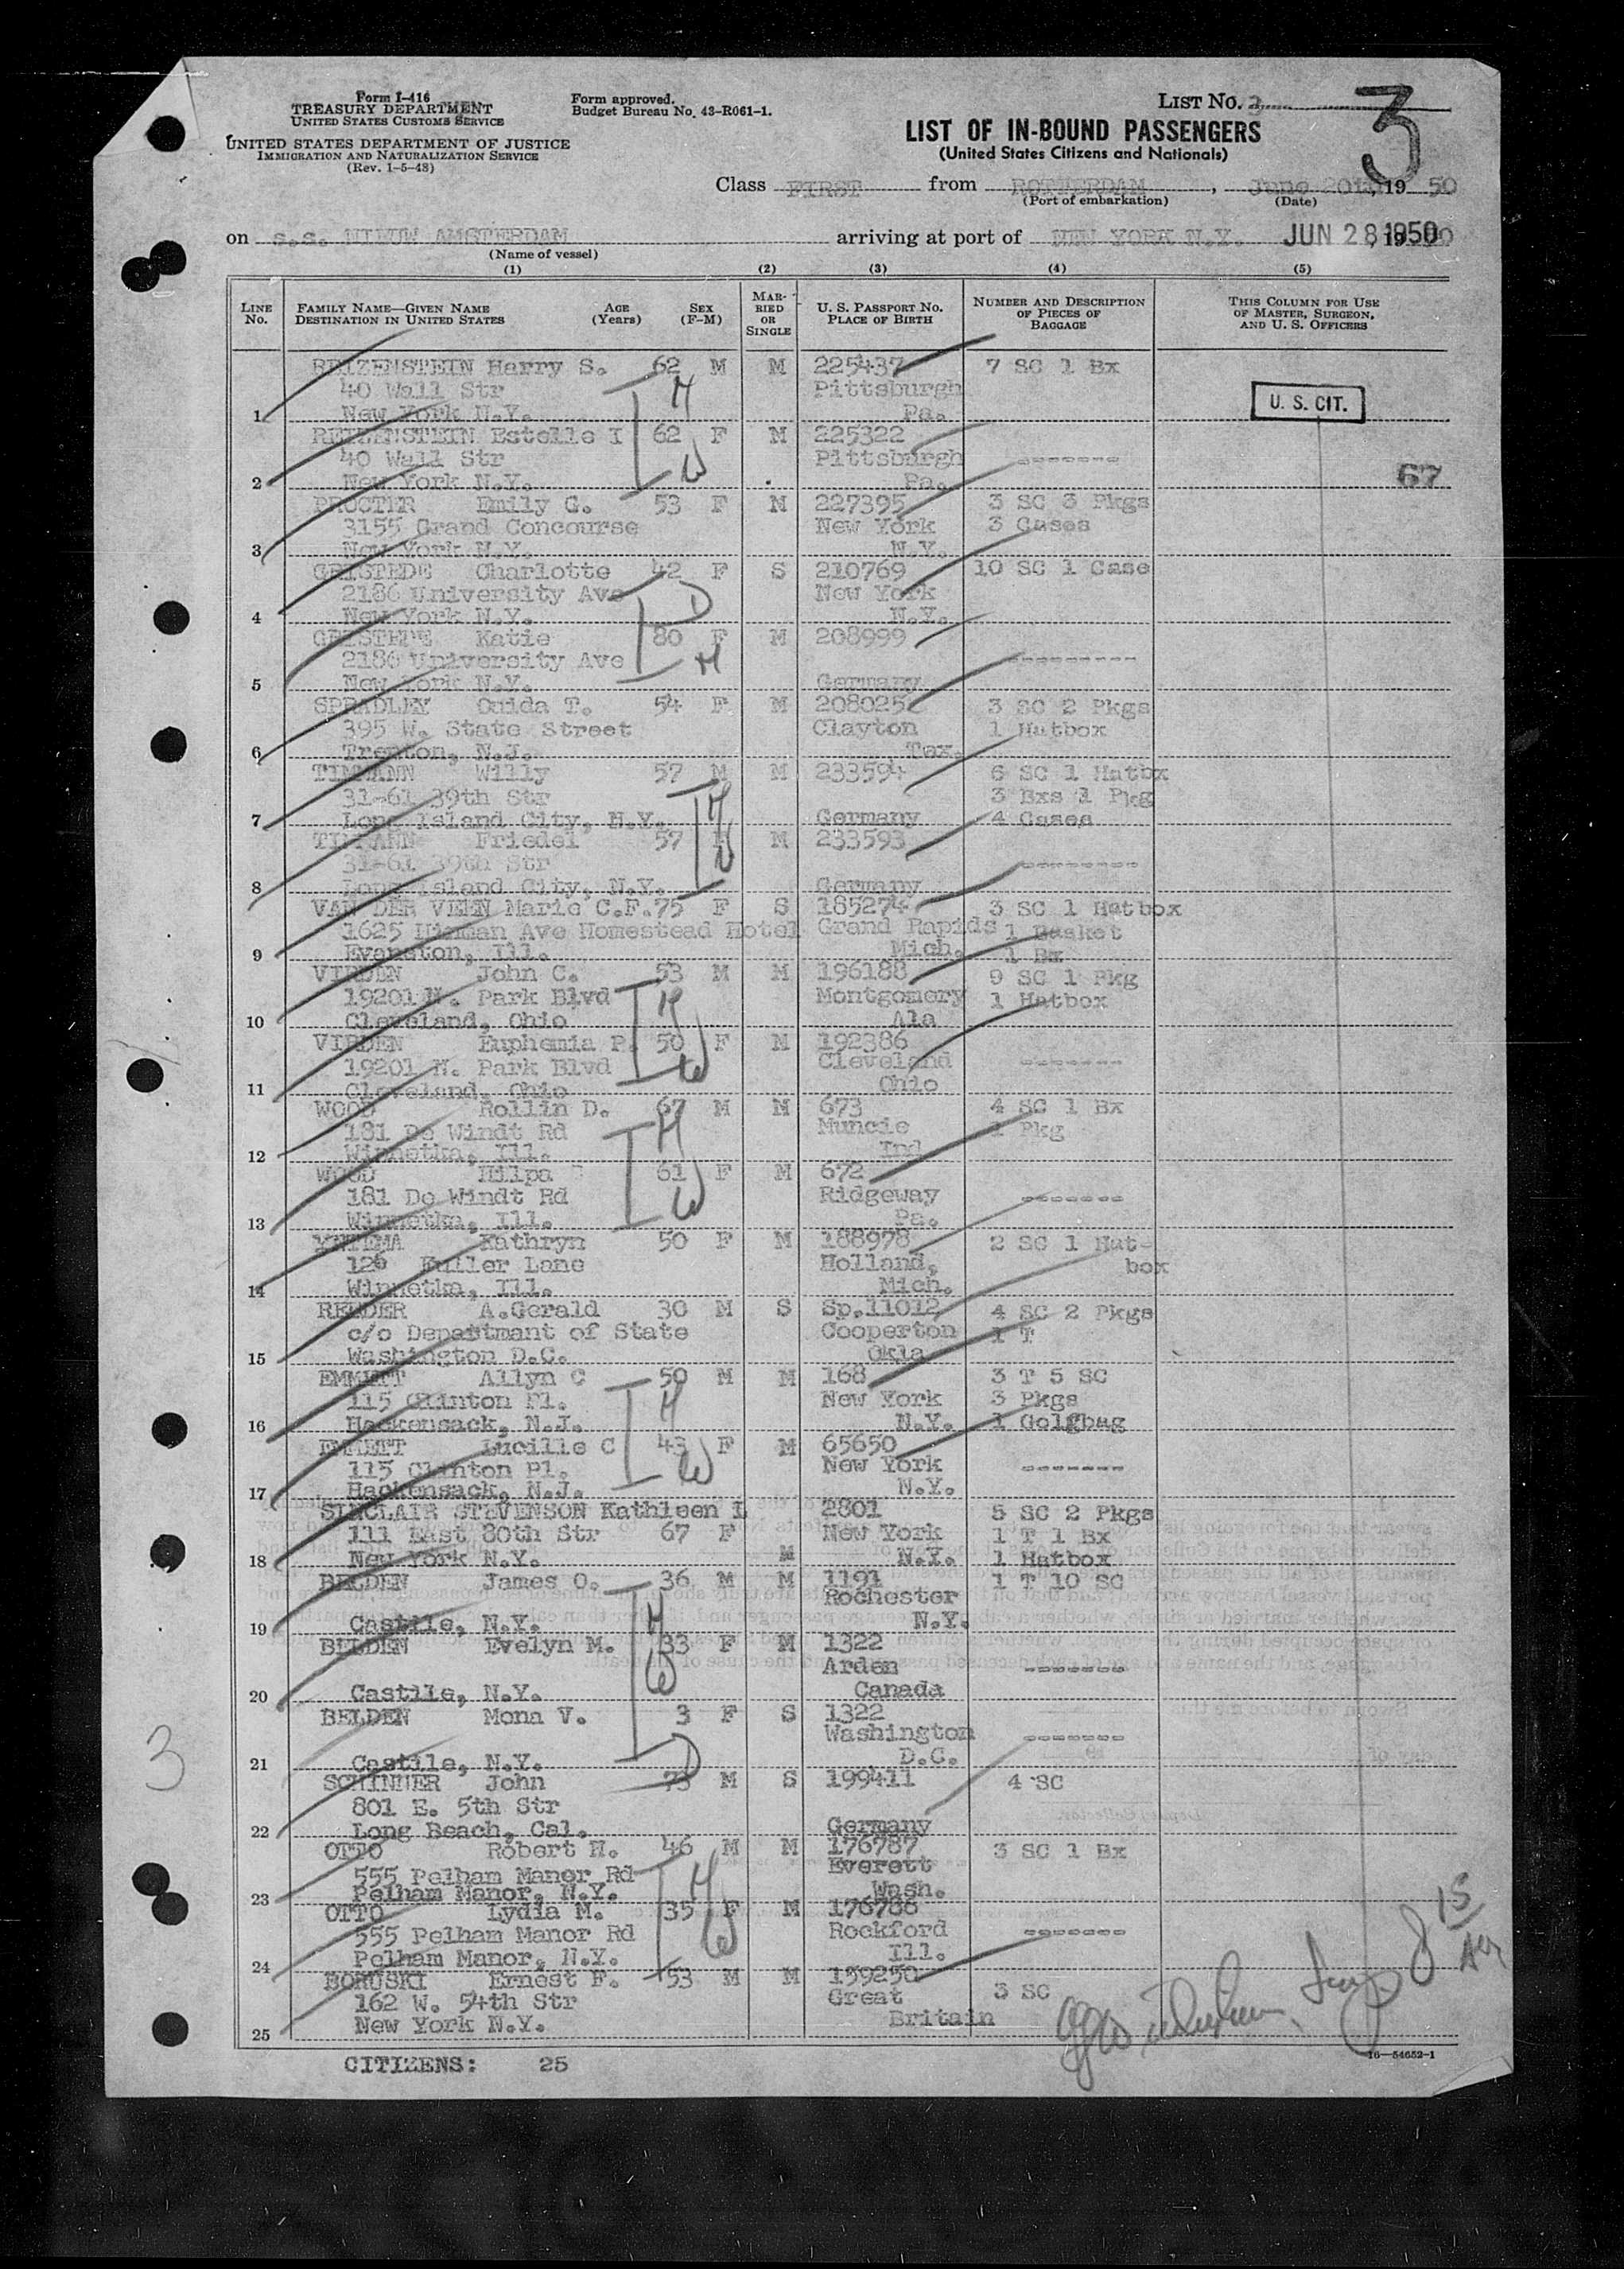 Form I-416
TREASURY DEPARTMENT
UNITED STATES CUSTOMS SERVICE
UNITED STATES DEPARTMENT OF JUSTICE
IMMIGRATION AND NATURALIZATION SERVICE
(Rev. 1-5-48)
Form approved.
Budget Bureau No. 43-R061-1.
LIST No. 3
3
LIST OF IN-BOUND PASSENGERS
(United States Citizens and Nationals)
Class FIRST from ROTTERDAM, June 20th, 19 50
(Port of embarkation) (Date)
on s.s. NIEUW AMSTERDAM arriving at port of NEW YORK N.Y. JUN 28 1950, 19
(Name of vessel)
(1) (2) (3) (4) (5)
LINE No. FAMILY NAME—GIVEN NAME DESTINATION IN UNITED STATES AGE (Years) SEX (F-M) MARRIED OR SINGLE U. S. PASSPORT NO. PLACE OF BIRTH NUMBER AND DESCRIPTION OF PIECES OF BAGGAGE THIS COLUMN FOR USE OF MASTER, SURGEON, AND U. S. OFFICERS
REIZENSTEIN Harry S. 62 M M 225437 7 SC 1 Bx
40 Wall Str H Pittsburgh U. S. CIT.
1 New York N.Y. Pa.
REIZENSTEIN Estelle I 62 F M 225322
40 Wall Str W Pittsburgh -------
2 New York N.Y. Pa. 67
PROCTER Emily G. 53 F M 227395 3 SC 3 Pkgs
3155 Grand Concourse New York 3 Cases
3 New York N.Y. N.Y.
GRISTEDE Charlotte 42 F S 210769 10 SC 1 Case
2186 University Ave D New York
4 New York N.Y. N.Y.
GRISTEDE Katie 80 F M 208999
2186 University Ave M ---------
5 New York N.Y. Germany
SPRADLEY Ouida T. 54 F M 208025 3 SC 2 Pkgs
395 W. State Street Clayton 1 Hatbox
6 Trenton, N.J. Tex.
TIMMANN Willy 57 M M 233594 6 SC 1 Hatbx
31-61 39th Str H 3 Bxs 1 Pkg
7 Long Island City, N.Y. Germany 4 Cases
TIMMANN Friedel 57 F M 233593
31-61 39th Str W --------
8 Long Island City, N.Y. Germany
VAN DER VEEN Marie C.F. 75 F S 185274 3 SC 1 Hatbox
1625 Hinman Ave Homestead Hotel Grand Rapids 1 Basket
9 Evanston, Ill. Mich. 1 Bx
VIRDEN John C. 53 M M 196188 9 SC 1 Pkg
19201 N. Park Blvd H Montgomery 1 Hatbox
10 Cleveland, Ohio Ala
VIRDEN Euphemia P. 50 F M 192386
19201 N. Park Blvd W Cleveland -------
11 Cleveland, Ohio Ohio
WOOD Rollin D. 67 M M 673 4 SC 1 Bx
181 De Windt Rd H Muncie 1 Pkg
12 Winnetka, Ill. Ind
WOOD Hilpa 61 F M 672
181 De Windt Rd W Ridgeway -------
13 Winnetka, Ill. Pa.
YNTEMA Kathryn 50 F M 188978 2 SC 1 Hat-
126 Fuller Lane Holland, box
14 Winnetka, Ill. Mich.
REEDER A.Gerald 30 M S Sp.11012 4 SC 2 Pkgs
c/o Departmant of State Cooperton 1 T
15 Washington D.C. Okla
EMMETT Allyn C 50 M M 168 3 T 5 SC
115 Clinton Pl. H New York 3 Pkgs
16 Hackensack, N.J. N.Y. 1 Golfbag
EMMETT Lucille C 43 F M 65650
115 Clinton Pl. W New York -------
17 Hackensack, N.J. N.Y.
SINCLAIR STEVENSON Kathleen L 2801 5 SC 2 Pkgs
111 East 80th Str 67 F New York 1 T 1 Bx
18 New York N.Y. M N.Y. 1 Hatbox
BELDEN James O. 36 M M 1191 1 T 10 SC
H Rochester
19 Castile, N.Y. N.Y.
BELDEN Evelyn M. 33 F M 1322
W Arden -------
20 Castile, N.Y. Canada
BELDEN Mona V. 3 F S 1322
Washington -------
21 Castile, N.Y. D D.C.
SCHINNER John 73 M S 199411 4 SC
801 E. 5th Str
22 Long Beach, Cal. Germany
OTTO Robert H. 46 M M 176787 3 SC 1 Bx
555 Pelham Manor Rd H Everett
23 Pelham Manor, N.Y. Wash.
OTTO Lydia M. 35 F M 176786
555 Pelham Manor Rd W Rockford -------
24 Pelham Manor, N.Y. Ill.
BORUSKI Ernest F. 53 M M 159250
162 W. 54th Str Great 3 SC
25 New York N.Y. Britain
CITIZENS: 25
16—54652-1
3